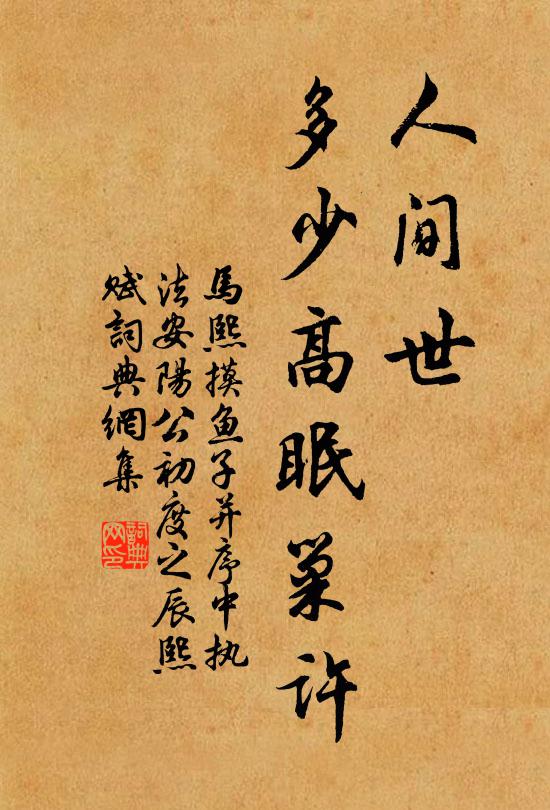 人间世
多少高眠巢许
馬熙摸鱼子并序中执
法安陽公初度之辰熙
赋詞典網集
詞典
网印